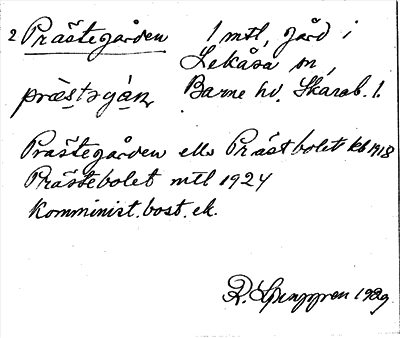 2 Prästegården 1 mtl, gård i
Lekåsa sn,
præstɜgán, Barne hd. Skarab. l.
Prästegården ell. Prästbolet kb 1918
Prästebolet mtl 1924
Komminist. bost. ek.
R. 1929